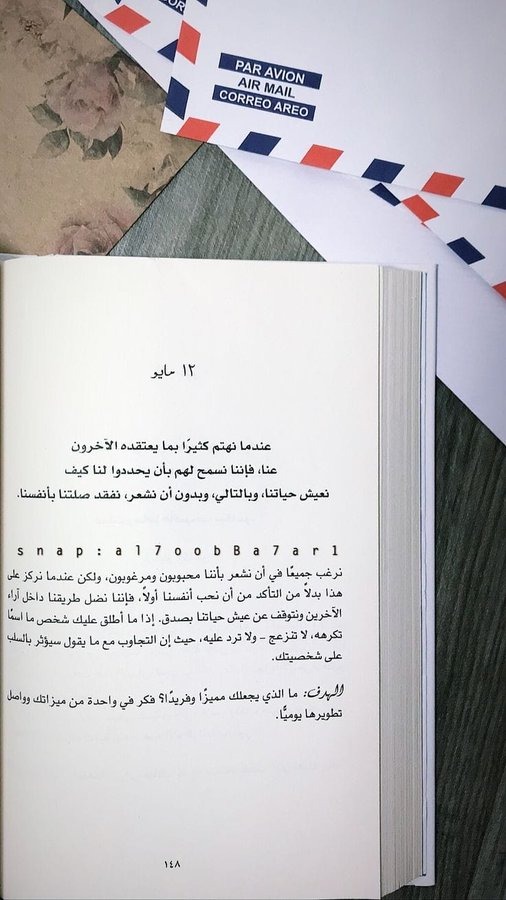 PAR AVION
AIR MAIL
CORREO AREO
١٢ مايو
عندما نهتم كثيرًا بما يعتقده الآخرون
عنا، فإننا نسمح لهم بأن يحددوا لنا كيف
نعيش حياتنا، وبالتالي، وبدون أن نشعر، نفقد صلتنا بأنفسنا.
snap:al7oobBa7ar1
نرغب جميعًا في أن نشعر بأننا محبوبون ومرغوبون، ولكن عندما نركز على
هذا بدلًا من التأكد من أن نحب أنفسنا أولًا، فإننا نضل طريقنا داخل آراء
الآخرين ونتوقف عن عيش حياتنا بصدق. إذا ما أطلق عليك شخص ما اسمًا
تكرهه، لا تنزعج - ولا ترد عليه، حيث إن التجاوب مع ما يقول سيؤثر بالسلب
على شخصيتك.
الهدف: ما الذي يجعلك مميزًا وفريدًا؟ فكر في واحدة من ميزاتك وواصل
تطويرها يوميًا.
١٤٨